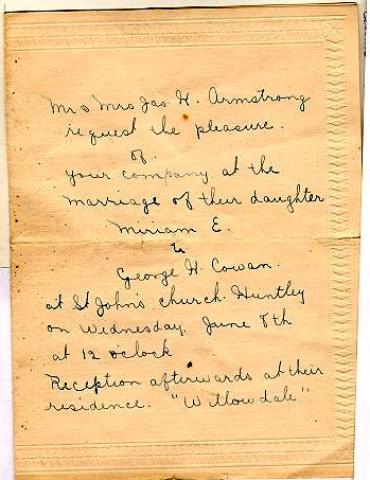 Mr & Mrs Jas H. Armstrong
request the pleasure.
of.
your company at the
marriage of their daughter
Miriam E.
to
George H. Cowan.
at St John's church Huntley
on Wednesday June 8th
at 12 o'clock
Reception afterwards at their
residence. "Willowdale"